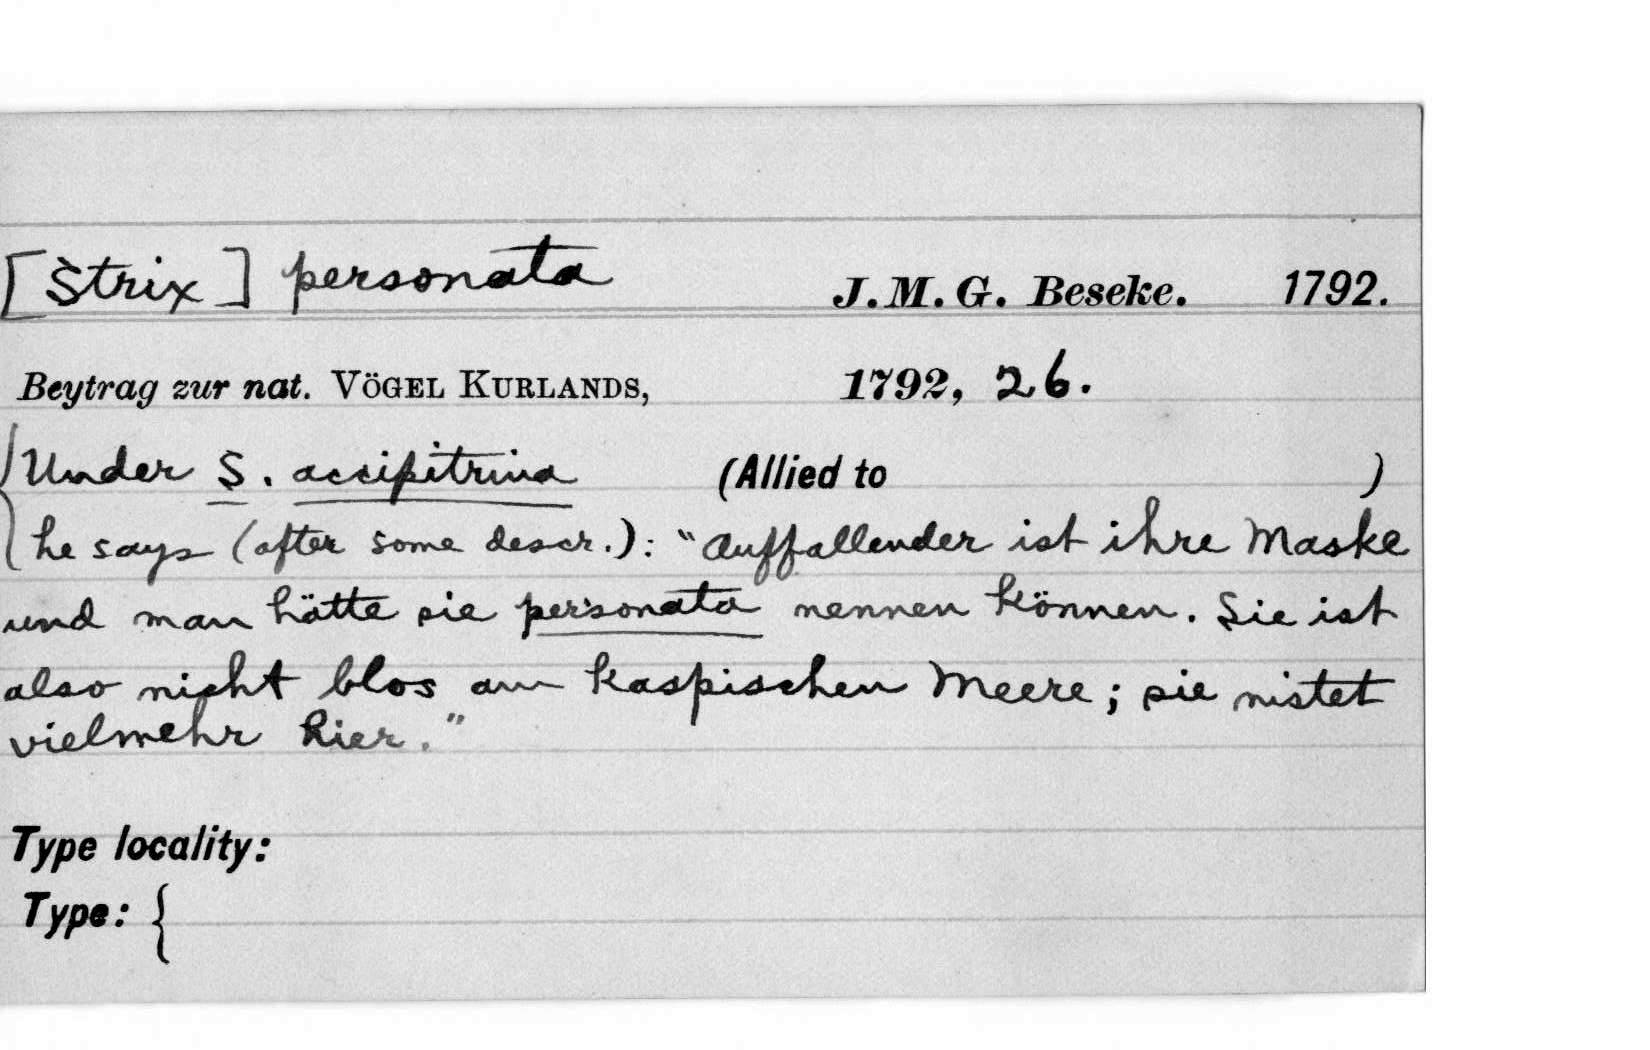 [Strix] personata J. M. G. Beseke. 1792.
Beytrag zur nat. VÖGEL KURLANDS, 1792, 26.
Under S. accipitrina (Allied to )
he says (after some descr.): "Auffallender ist ihre Maske
und man hätte sie personata nennen können. Sie ist
also nicht blos am Kaspischen Meere; sie nistet
vielmehr hier."
Type locality:
Type: {